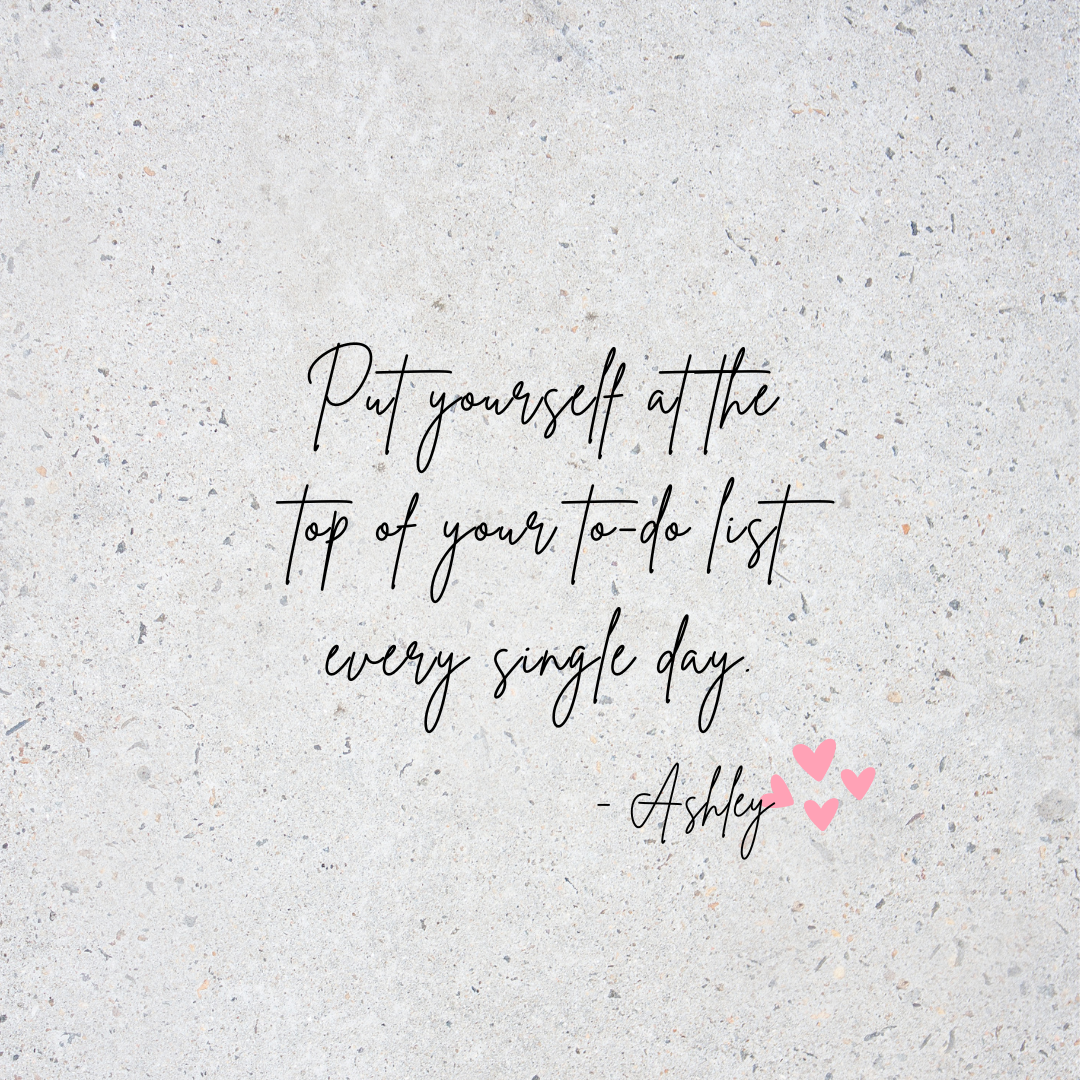 Put yourself at the
top of your to-do list
every single day.
- Ashley